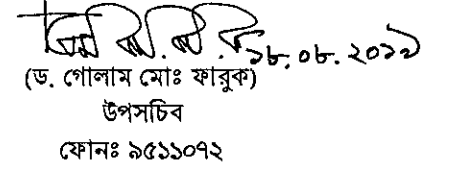 ১৮.০৮.২০১৯
(ড. গোলাম মোঃ ফারুক)
উপসচিব
ফোনঃ ৯৫১১০৭২